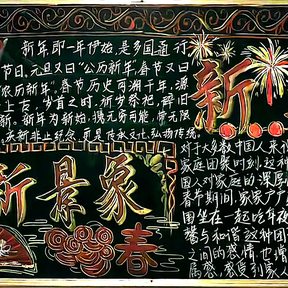 新年即一年伊始,是多国通行
节日,元旦又曰"公历新年",春节又曰
"农历新年",春节历史两湘千年,源
上古,岁首之时,祈岁祭祀,辞旧
新,新年为新始,携无穷可能,带无限
来新非止纪念,更是传承又比弘扬传统。
新
对于大多数中国人来
家庭团聚时刻,这种
国人对家庭的深厚
春节期间,家家户户
围坐在一起吃年夜
馨与和谐这种团
之间的感情也增
属感,感受到家人
新景象
春